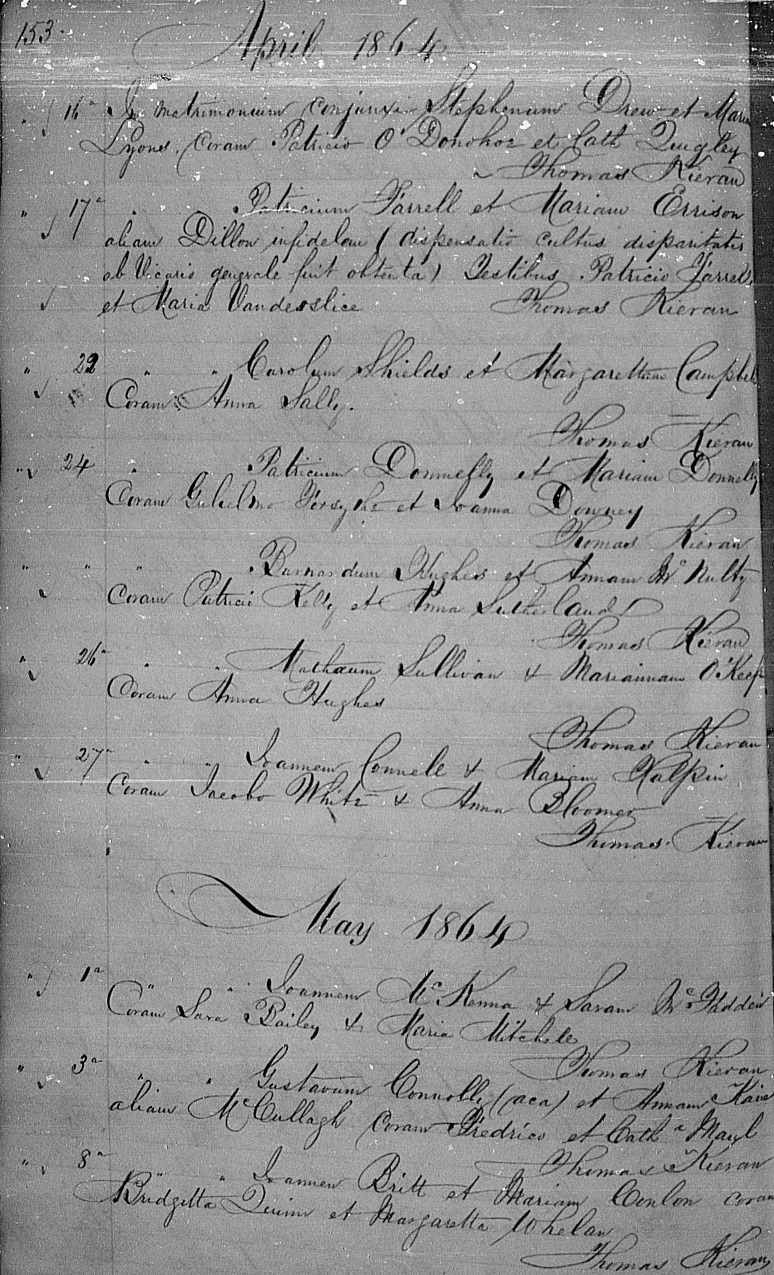 153.
April 1864
" 16a In matrimonium conjunxi Stephenum Drew et Mariam
Lyons. Coram Patricio O'Donohoe et Cath Quigley
Thomas Kieran
" 17a " Patricium Farrell et Mariam Errison
aliam Dillon infidelem (dispensatio cultus disparitatis
ab Vicario generale fuit obtenta) Testibus Patricio Farrell
et Maria Vanderslice Thomas Kieran
" 22 " " Carolum Shields et Margarettam Campbell
Coram Anna Sally.
Thomas Kieran
" 24 " Patricium Donnelly et Mariam Donnelly
Coram Gulielmo Forsythe et Joanna Downey
Thomas Kieran
" " " Barnardum Hughes et Annam McNulty
Coram Patricio Kelly et Anna Sutherland
Thomas Kieran
" 26a " " Mathaeum Sullivan & Mariannam O'Keef
Coram Anna Hughes
Thomas Kieran
" 27a " " Joannem Connell & Mariam Halpin
Coram Jacobo White & Anna Bloomer
Thomas Kieran
May 1864
" 1a " " Joannem McKenna & Saram McFadden
Coram Sara Bailey & Maria Mitchele
Thomas Kieran
" 3a " " Gustavum Connolly (aca) et Annam
aliam McCullagh Coram Fredrico et Catha Mayl
Thomas Kieran
" 8a " " Joannem Britt et Mariam Conlon coram
Bridgetta Quinn et Margaretta Whelan
Thomas Kieran